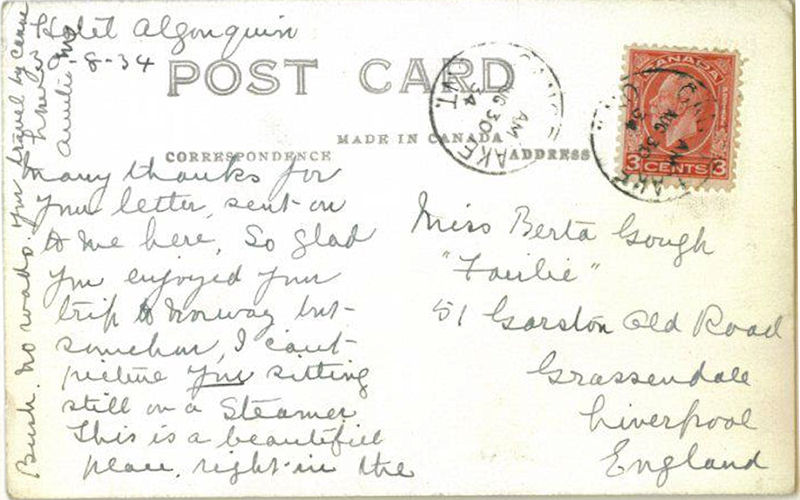 Hotel Algonquin
-8-34
POST CARD
MADE IN CANADA
CORRESPONDENCE
ADDRESS
CANADA
3 CENTS 3
AUG 30
AM
34
ONT.
LAKE
Many thanks for
your letter, sent on
to me here, So glad
you enjoyed your
trip to Norway but
somehow, I can't
picture you sitting
still on a Steamer
This is a beautiful
place, right in the
Bush. No roads. You travel by canoe
Miss Berta Gough
51 Garston Old Road
Grassendale
Liverpool
England